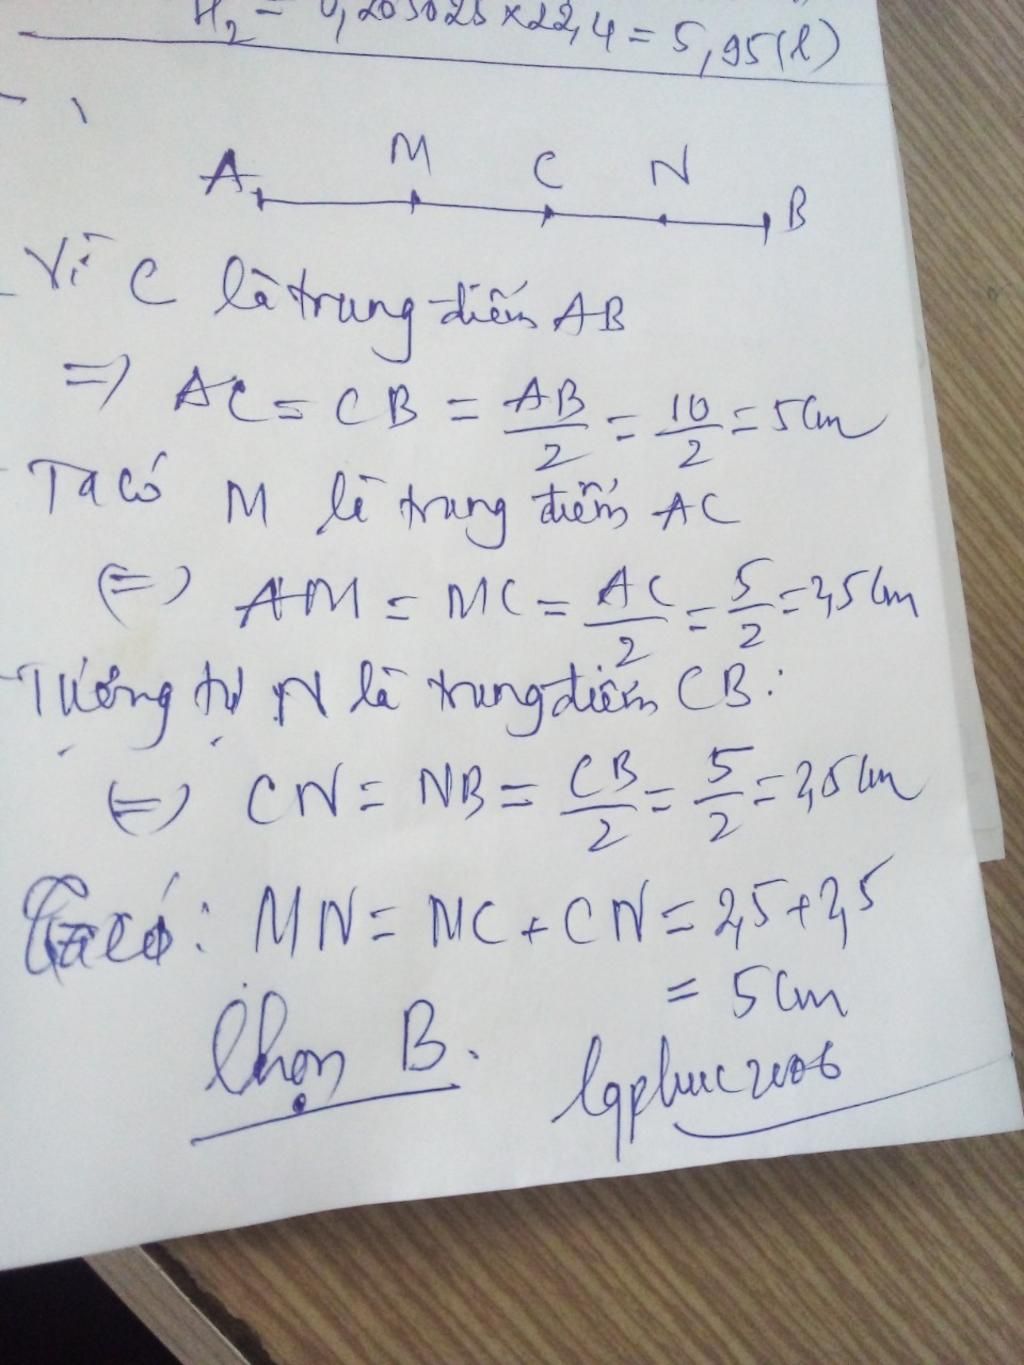 H₂ = 0,265625 x 22,4 = 5,95 (l)
A M C N B
Vì C là trung điểm AB
=> AC = CB = AB/2 = 10/2 = 5cm
Ta có M là trung điểm AC
(=) AM = MC = AC/2 = 5/2 = 2,5cm
Tương tự N là trung điểm CB:
(=) CN = NB = CB/2 = 5/2 = 2,5cm
Ta có: MN = MC + CN = 2,5 + 2,5
= 5cm
Chọn B.
lqphuc2006